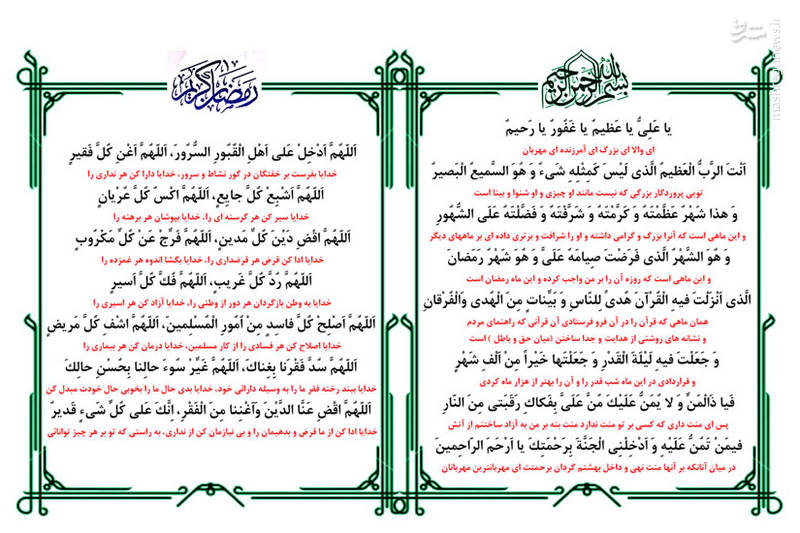 بسم الله الرحمن الرحیم
یا عَلِیُّ یا عَظیمُ یا غَفُورُ یا رَحیمُ
ای والا ای بزرگ ای آمرزنده ای مهربان
اَنْتَ الرَّبُّ الْعَظیمُ الَّذی لَیْسَ کَمِثْلِهِ شَیءٌ وَ هُوَ السَّمیعُ الْبَصیرُ
تویی پروردگار بزرگی که نیست مانند او چیزی و او شنوا و بینا است
وَ هذا شَهْرٌ عَظَّمْتَهُ وَ کَرَّمْتَهُ وَ شَرَّفْتَهُ وَ فَضَّلْتَهُ عَلَی الشُّهُورِ
و این ماهی است که آنرا بزرگ و گرامی داشته و او را شرافت و برتری داده ای بر ماههای دیگر
وَ هُوَ الشَّهْرُ الَّذی فَرَضْتَ صِیامَهُ عَلَیَّ وَ هُوَ شَهْرُ رَمَضانَ
و این ماهی است که روزه آن را بر من واجب کرده و این ماه رمضان است
الَّذی اَنْزَلْتَ فیهِ الْقُرْآنَ هُدیً لِلنّاسِ وَ بَیِّناتٍ مِنَ الْهُدی وَالْفُرْقانِ
همان ماهی که قرآن را در آن فرو فرستادی آن قرآنی که راهنمای مردم
و نشانه های روشنی از هدایت و جدا ساختن (میان حق و باطل ) است
وَ جَعَلْتَ فیهِ لَیْلَةَ الْقَدْرِ وَ جَعَلْتَها خَیْراً مِنْ اَلْفِ شَهْرٍ
و قراردادی در این ماه شب قدر را و آن را بهتر از هزار ماه کردی
فَیا ذَاالْمَنِّ وَ لا یُمَنُّ عَلَیْکَ مُنَّ عَلَیَّ بِفَکاکِ رَقَبَتی مِنَ النّارِ
پس ای منت داری که کسی بر تو منت ندارد منت بنه بر من به آزاد ساختنم از آتش
فیمَنْ تَمُنَّ عَلَیْهِ وَ اَدْخِلْنِی الْجَنَّةَ بِرَحْمَتِکَ یا اَرْحَمَ الرّاحِمینَ
در میان آنانکه بر آنها منت نهی و داخل بهشتم گردان برحمتت ای مهربانترین مهربانان
رمضان کریم
اَللّهُمَّ اَدْخِلْ عَلی اَهْلِ الْقُبُورِ السُّرُورَ، اَللّهُمَّ اَغْنِ کُلَّ فَقیرٍ
خدایا بفرست بر خفتگان در گور نشاط و سرور، خدایا دارا کن هر نداری را
اَللّهُمَّ اَشْبِعْ کُلَّ جایِعٍ، اَللّهُمَّ اکْسُ کُلَّ عُرْیانٍ
خدایا سیر کن هر گرسنه ای را، خدایا بپوشان هر برهنه را
اَللّهُمَّ اقْضِ دَیْنَ کُلِّ مَدینٍ، اَللّهُمَّ فَرِّجْ عَنْ کُلِّ مَکْرُوبٍ
خدایا ادا کن قرض هر قرضداری را، خدایا بگشا اندوه هر غمزده را
اَللّهُمَّ رُدَّ کُلَّ غَریبٍ، اَللّهُمَّ فُکَّ کُلَّ اَسیرٍ
خدایا به وطن بازگردان هر دور از وطنی را، خدایا آزاد کن هر اسیری را
اَللّهُمَّ اَصْلِحْ کُلَّ فاسِدٍ مِنْ اُمُورِ الْمُسْلِمینَ، اَللّهُمَّ اشْفِ کُلَّ مَریضٍ
خدایا اصلاح کن هر فسادی را از کار مسلمین، خدایا درمان کن هر بیماری را
اَللّهُمَّ سُدَّ فَقْرَنا بِغِناکَ، اَللّهُمَّ غَیِّرْ سُوءَ حالِنا بِحُسْنِ حالِکَ
خدایا ببند رخنه فقر ما را به وسیله دارائی خود، خدایا بدی حال ما را بخوبی حال خودت مبدل کن
اَللّهُمَّ اقْضِ عَنَّا الدَّیْنَ وَاَغْنِنا مِنَ الْفَقْرِ، اِنَّکَ عَلی کُلِّ شَیءٍ قَدیرٌ
خدایا ادا کن از ما قرض و بدهیمان را و بی نیازمان کن از نداری، به راستی که تو بر هر چیز توانائی
mashreghnews.ir